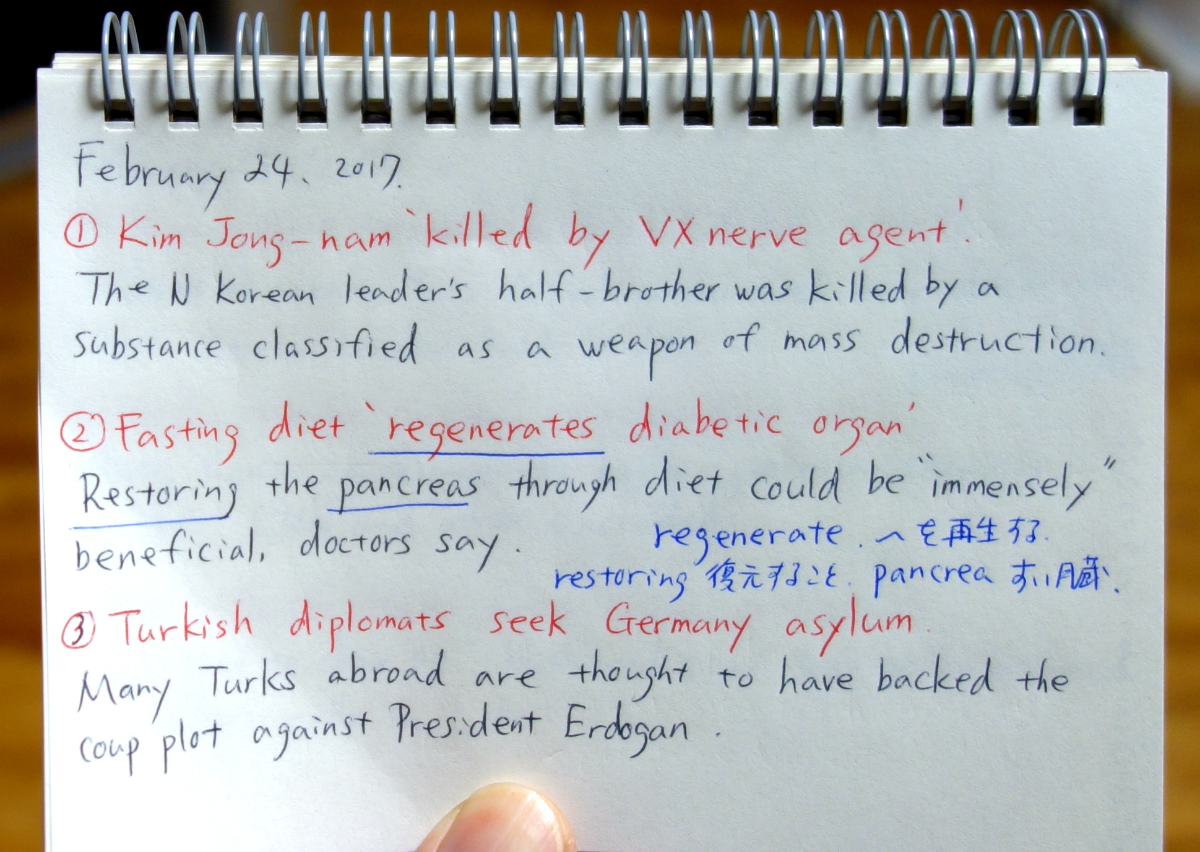 February 24, 2017.
① Kim Jong-nam 'killed by VX nerve agent'.
The N Korean leader's half-brother was killed by a
substance classified as a weapon of mass destruction.
② Fasting diet 'regenerates diabetic organ'
Restoring the pancreas through diet could be "immensely"
beneficial, doctors say.
regenerate. 〜を再生する.
restoring 復元すること. pancrea すい臓.
③ Turkish diplomats seek Germany asylum.
Many Turks abroad are thought to have backed the
coup plot against President Erdogan.